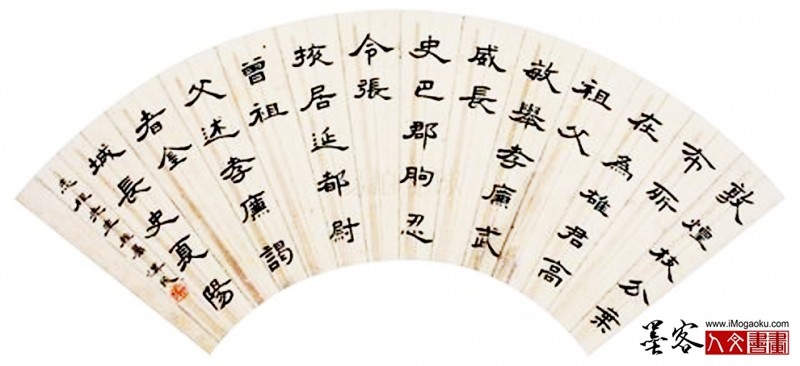 敦煌枝分葉
布所
在為雄君高
祖父
敏舉孝廉武
威長
史巴郡朐忍
令張
掖居延都尉
曾祖
父述孝廉謁
者金
城長史夏陽
先生
墨客
www.iMogaoku.com
人文書畫